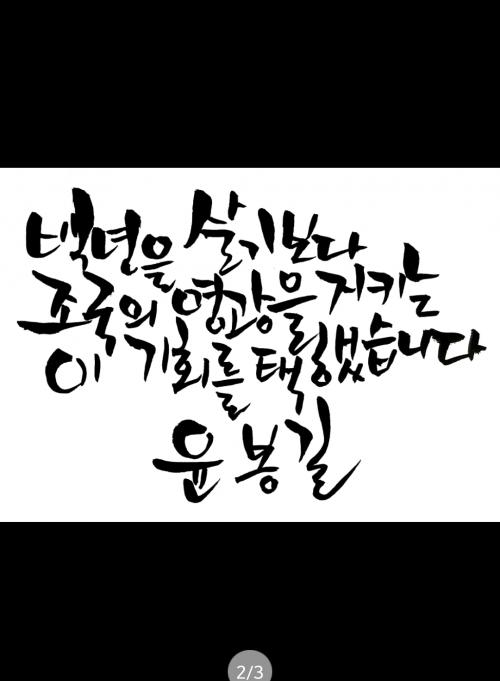 백년을 살기보다
조국의 영광을 지키는
이 기회를 택했습니다
윤봉길
2/3